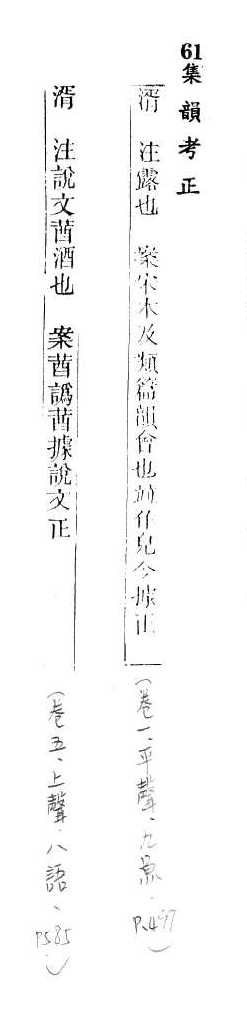 61集韻考正
湑 注露也 案宋本及類篇韻會也並作皃今據正
(卷一、平聲、九魚、P.497)
湑 注說文莤酒也 案莤譌茜據說文正
(卷五、上聲、八語、P585)